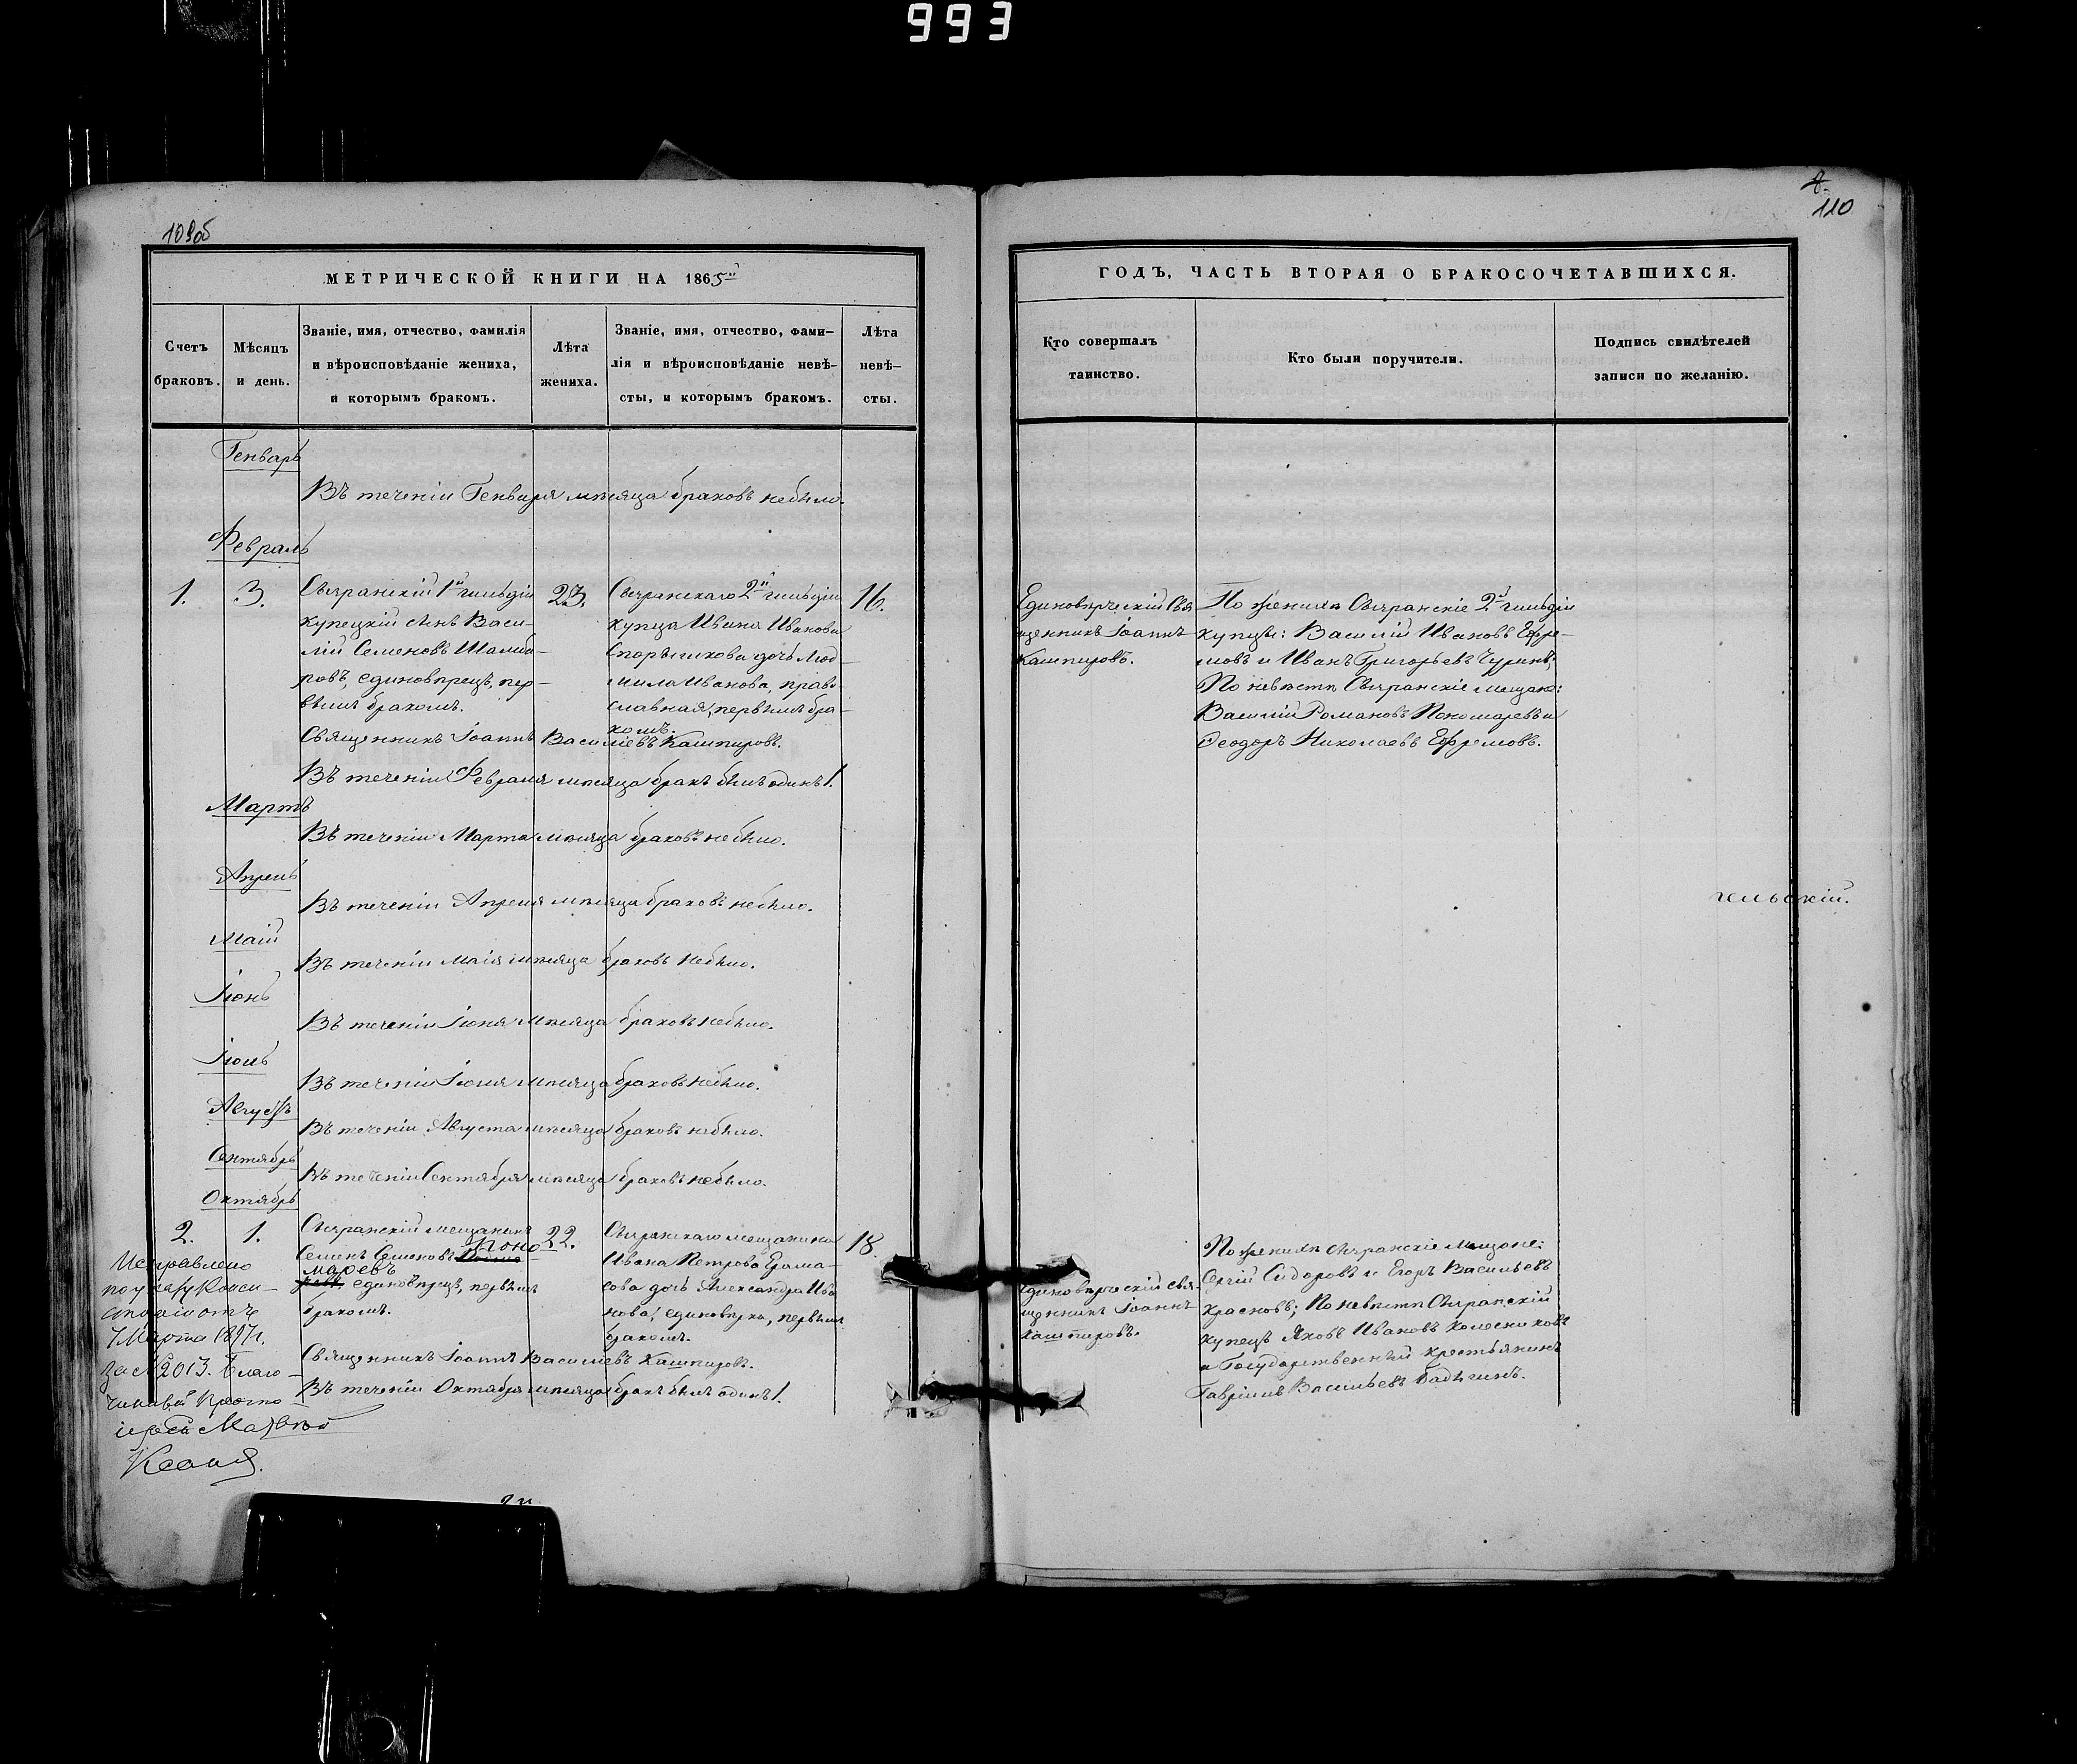 993
109об
8.
110
МЕТРИЧЕСКОЙ КНИГИ НА 1865й
Счетъ
браковъ.
Мѣсяцъ
и день.
Званіе, имя, отчество, фамилія
и вѣроисповѣданіе жениха,
и которымъ бракомъ.
Лѣта
жениха.
Званіе, имя, отчество, фами-
лія и вѣроисповѣданіе невѣ-
сты, и которымъ бракомъ.
Лѣта
невѣ-
сты.
Генварь
Въ теченіи Генваря мѣсяца браковъ небыло.
Февраль
1.
3.
Сызранскій 1й гильдіи
купецкій сынъ Васи-
лій Семеновъ
ровъ, единовѣрецъ, пер-
вымъ бракомъ.
23.
Сызранскаго 2й гильдіи
купца Ивана Иванова
дочь Люд-
мила Иванова, право-
славная, первымъ бра-
комъ.
16.
Священникъ Іоаннъ Василіевъ Кашпировъ.
Въ теченіи Февраля мѣсяца бракъ былъ одинъ 1.
Мартъ
Въ теченіи Марта мѣсяца браковъ небыло.
Апрель
Въ теченіи Апреля мѣсяца браковъ небыло.
Маій
Въ теченіи Маія мѣсяца браковъ небыло.
Іюнь
Въ теченіи Іюня мѣсяца браковъ небыло.
Іюль
Въ теченіи Іюля мѣсяца браковъ небыло.
Августъ
Въ теченіи Августа мѣсяца браковъ небыло.
Сентябрь
Въ теченіи Сентября мѣсяца браковъ небыло.
Октябрь
2.
1.
Сызранскій мещанинъ
Семенъ Семеновъ Поно
маревъ
единовѣрецъ, первымъ
бракомъ.
22.
Сызранскаго мещанина
Ивана Петрова Ерма-
сова дочь Александра Ива
нова, единовѣрка, первымъ
бракомъ.
18.
Священникъ Іоаннъ Василіевъ Кашпировъ.
Въ теченіи Октября мѣсяца бракъ былъ одинъ 1.
Исправлено
по указу Конси-
сторіи отъ
7 Марта 1897 г.
за № 2013. Благо-
чинный Прото
іерей
ГОДЪ, ЧАСТЬ ВТОРАЯ О БРАКОСОЧЕТАВШИХСЯ.
Кто совершалъ
таинство.
Кто были поручители.
Подпись свидѣтелей
записи по желанію.
Единовѣрческій Свя
щенникъ Іоаннъ
Кашпировъ.
По женихѣ Сызранскіе 2й гильдіи
купцы: Василій Ивановъ Ефре-
мовъ и Иванъ Григорьевъ Чуринъ;
По невѣстѣ Сызранскіе мещане:
Василій Романовъ Пономаревъ и
Феодоръ Николаевъ Ефремовъ.
гельскій.
Единовѣрческій свя-
щенникъ Іоаннъ
Кашпировъ.
По женихѣ Сызранскіе Мещане:
Сергій Сидоровъ и Егоръ Васильевъ
Красновъ; По невѣстѣ Сызранскій
купецъ Яковъ Ивановъ Колесниковъ
и Государственный крестьянинъ
Гавріилъ Васильевъ Бадыгинъ.